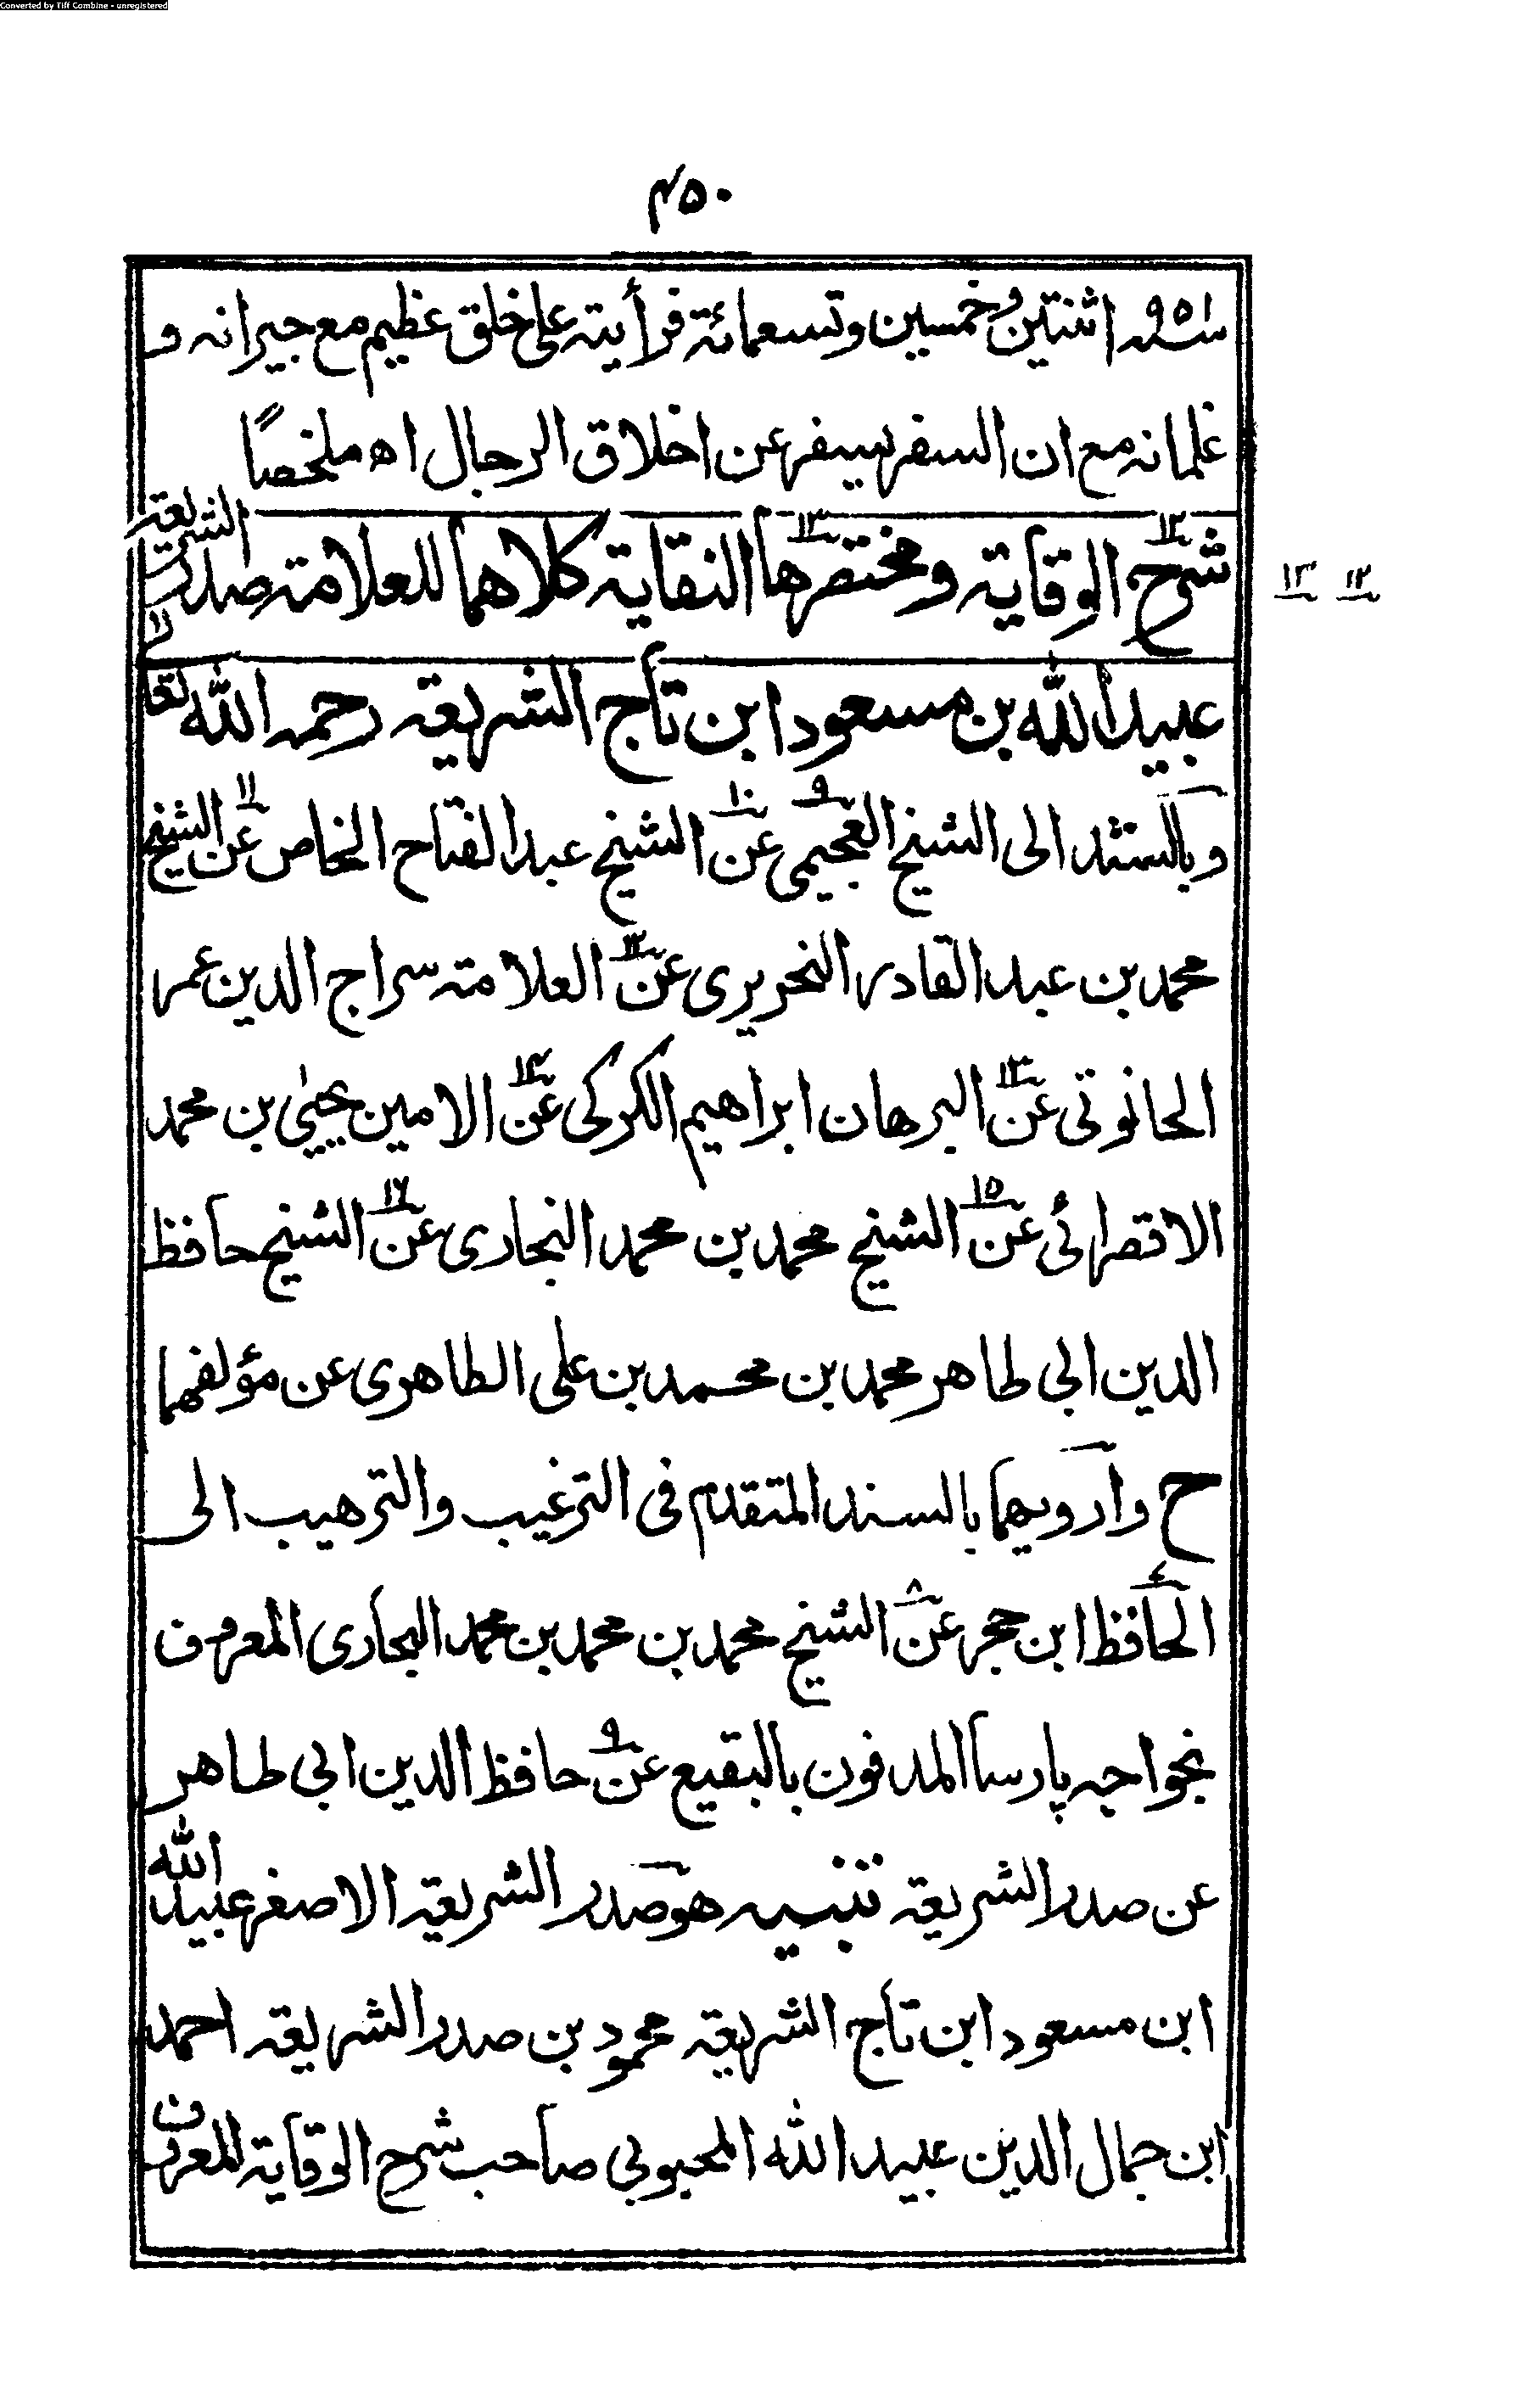 Converted by Tiff Combine - unregistered
٤٥٠
سنة ٩٥١ اثنتين وخمسين وتسعمائة فرأيته على خلق عظيم مع جيرانه و
غلمانه مع ان السفر يسفر عن اخلاق الرجال اه ملخصاً
شرح الوقاية ومختصرها النقاية كلاهما للعلامة صدر الشريعة
١٢ ١٣
عبيد الله بن مسعود ابن تاج الشريعة رحمه الله تعالى
وبالسند الى الشيخ العجيمي ٩ عن ١٠ الشيخ عبد الفتاح الخاص عن ١١ الشيخ
محمد بن عبد القادر النحريري عن ١٢ العلامة سراج الدين عمر
الحانوتي عن ١٣ البرهان ابراهيم الكركي عن ١٤ الامين يحيى بن محمد
الاقصرائي عن ١٥ الشيخ محمد بن محمد البخاري عن ١٦ الشيخ حافظ
الدين ابي طاهر محمد بن محمد بن علي الطاهري عن مؤلفهما
ح وارويهما بالسند المتقدم في الترغيب والترهيب الى
الحافظ ابن حجر عن ٨ الشيخ محمد بن محمد بن محمد البخاري المعروف
بخواجه پارسا المدفون بالبقيع عن ٩ حافظ الدين ابي طاهر
عن صدر الشريعة تنبيه هو صدر الشريعة الاصغر عبيد الله
ابن مسعود ابن تاج الشريعة محمود بن صدر الشريعة احمد
ابن جمال الدين عبيد الله المحبوبي صاحب شرح الوقاية المعروف